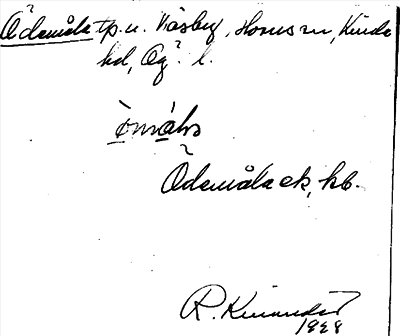 Ödemåla tp. u. Väsby, Horns sn, Kinda
hd, Ög. l.
òmålɑ
Ödemåla ek, kb.
R. Kinander
1928